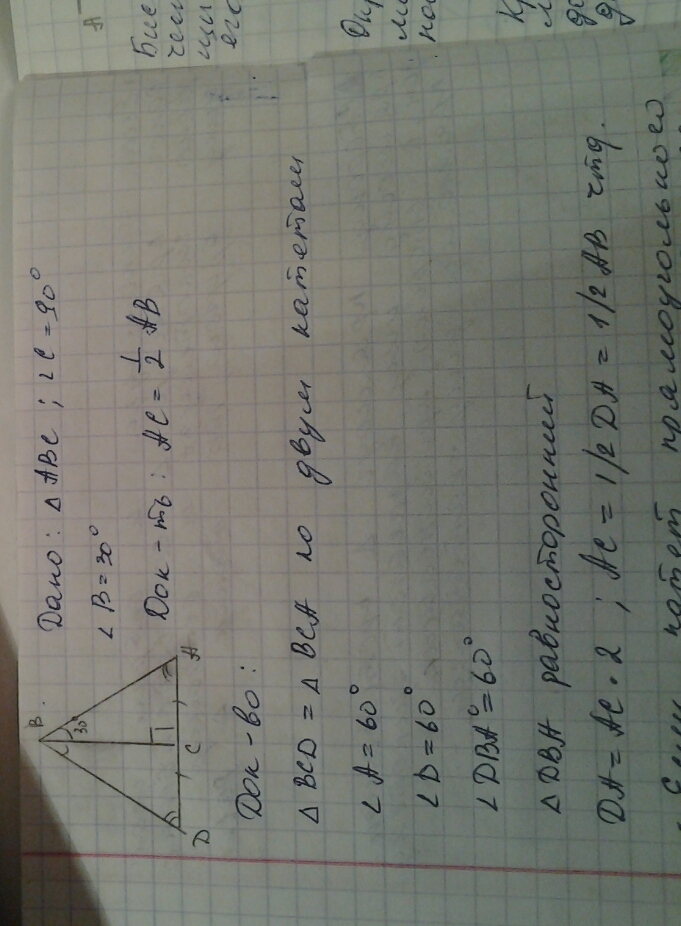 Дано: Δ ABC ; ∠C = 90°
∠B = 30°
Док-ть: AC = 1/2 AB
B
30°
D C A
Док-во:
Δ BCD = Δ BCA по двум катетам
∠A = 60°
∠D = 60°
∠DBA° = 60°
Δ DBA равносторонний
DA = AC · 2 ; AC = 1/2 DA = 1/2 AB чтд.
катет прямоугольного